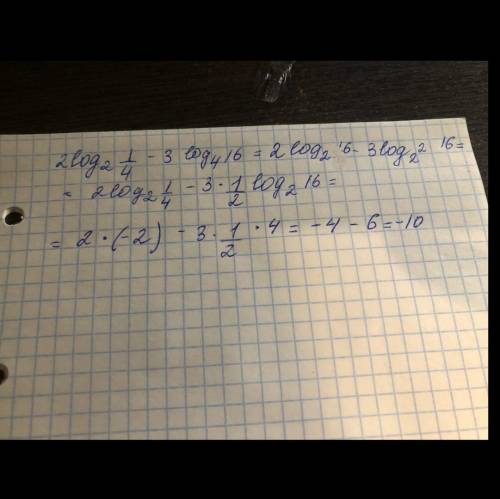 2log₂ 1/4 - 3 log₄16 = 2log₂16 - 3log₂² 16 =
= 2log₂ 1/4 - 3 · 1/2 log₂16 =
= 2 · (-2) - 3 · 1/2 · 4 = -4 - 6 = -10